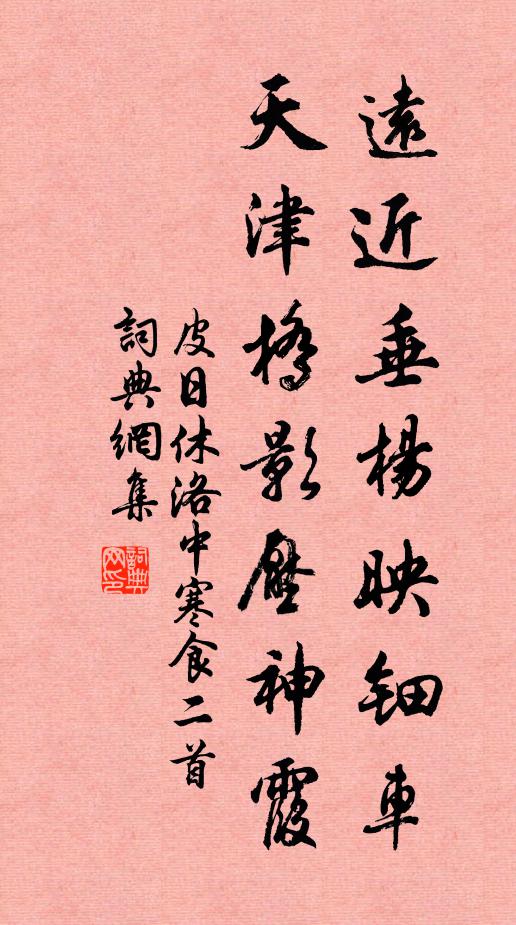 遠近垂楊映鈿車
天津橋影壓神霞
皮日休洛中寒食二首
詞典網集
詞典网印